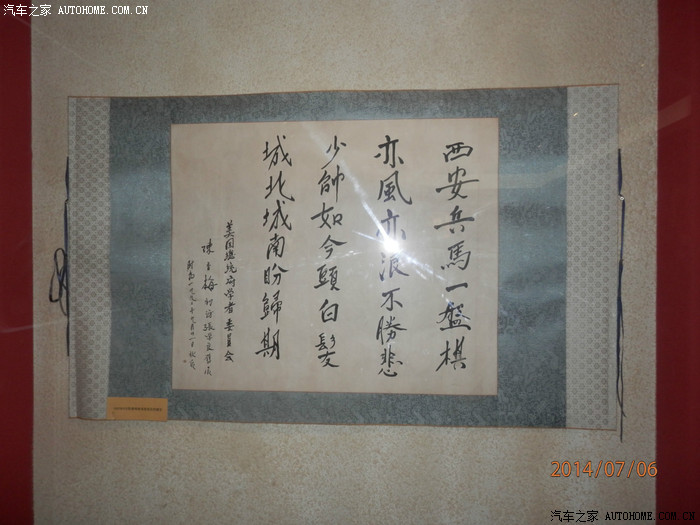 汽车之家 AUTOHOME.COM.CN
西安兵馬一盤棋
亦風亦浪不勝悲
少帥如今頭白髮
城北城南盼歸期
美国總统府学者委員会
陳香梅
2014/07/06
汽车之家 AUTOHOME.COM.CN